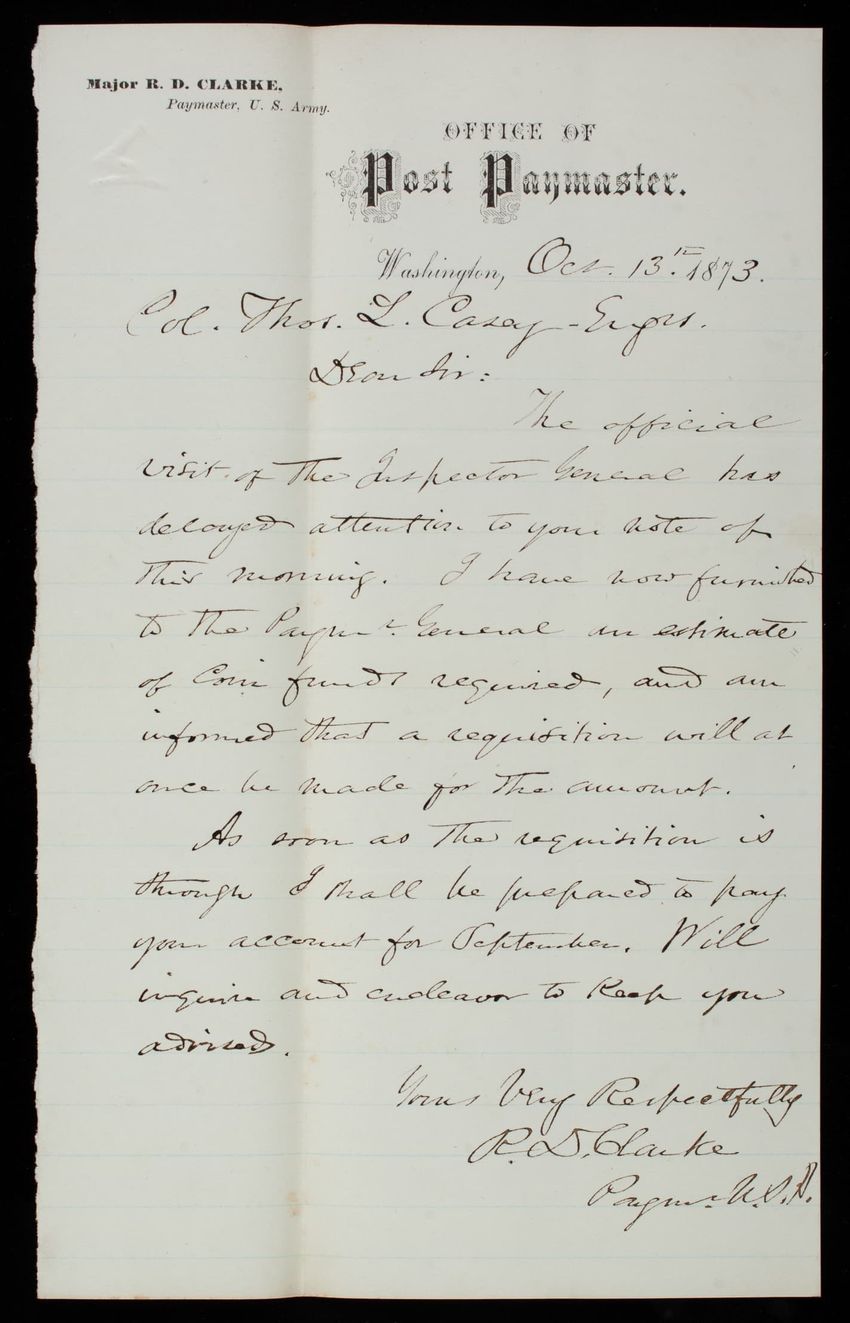 Major R. D. CLARKE,
Paymaster, U. S. Army.
OFFICE OF
Post Paymaster.
Washington, Oct. 13th. 1873.
Col. Thos. L. Casey - Engrs.
Dear Sir:
The official
visit of the Inspector General has
delayed attention to your note of
this morning. I have now furnished
to the Paymr. General an estimate
of Coin funds required, and am
informed that a requisition will at
once be made for the amount.
As soon as the requisition is
through I shall be prepared to pay
your account for September. Will
inquire and endeavor to keep you
advised.
Yours Very Respectfully
R. D. Clarke
Paymr. U.S.A.